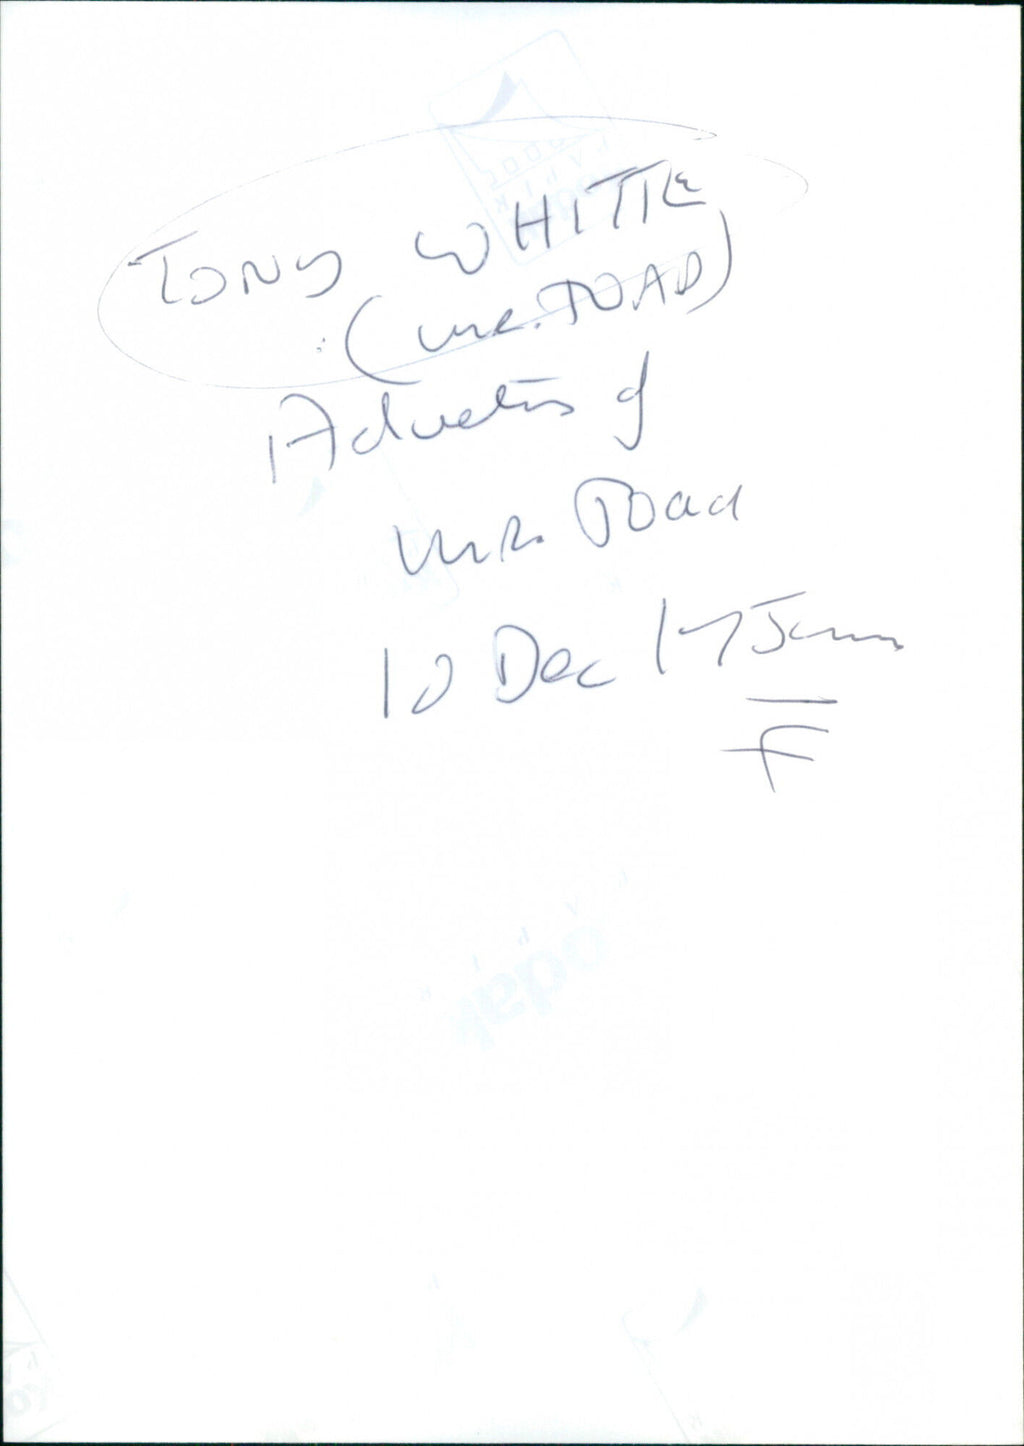 TONY WHITTLE
(Mr. TOAD)
Adventures of
Mr. Toad
10 Dec 17 Jan
F